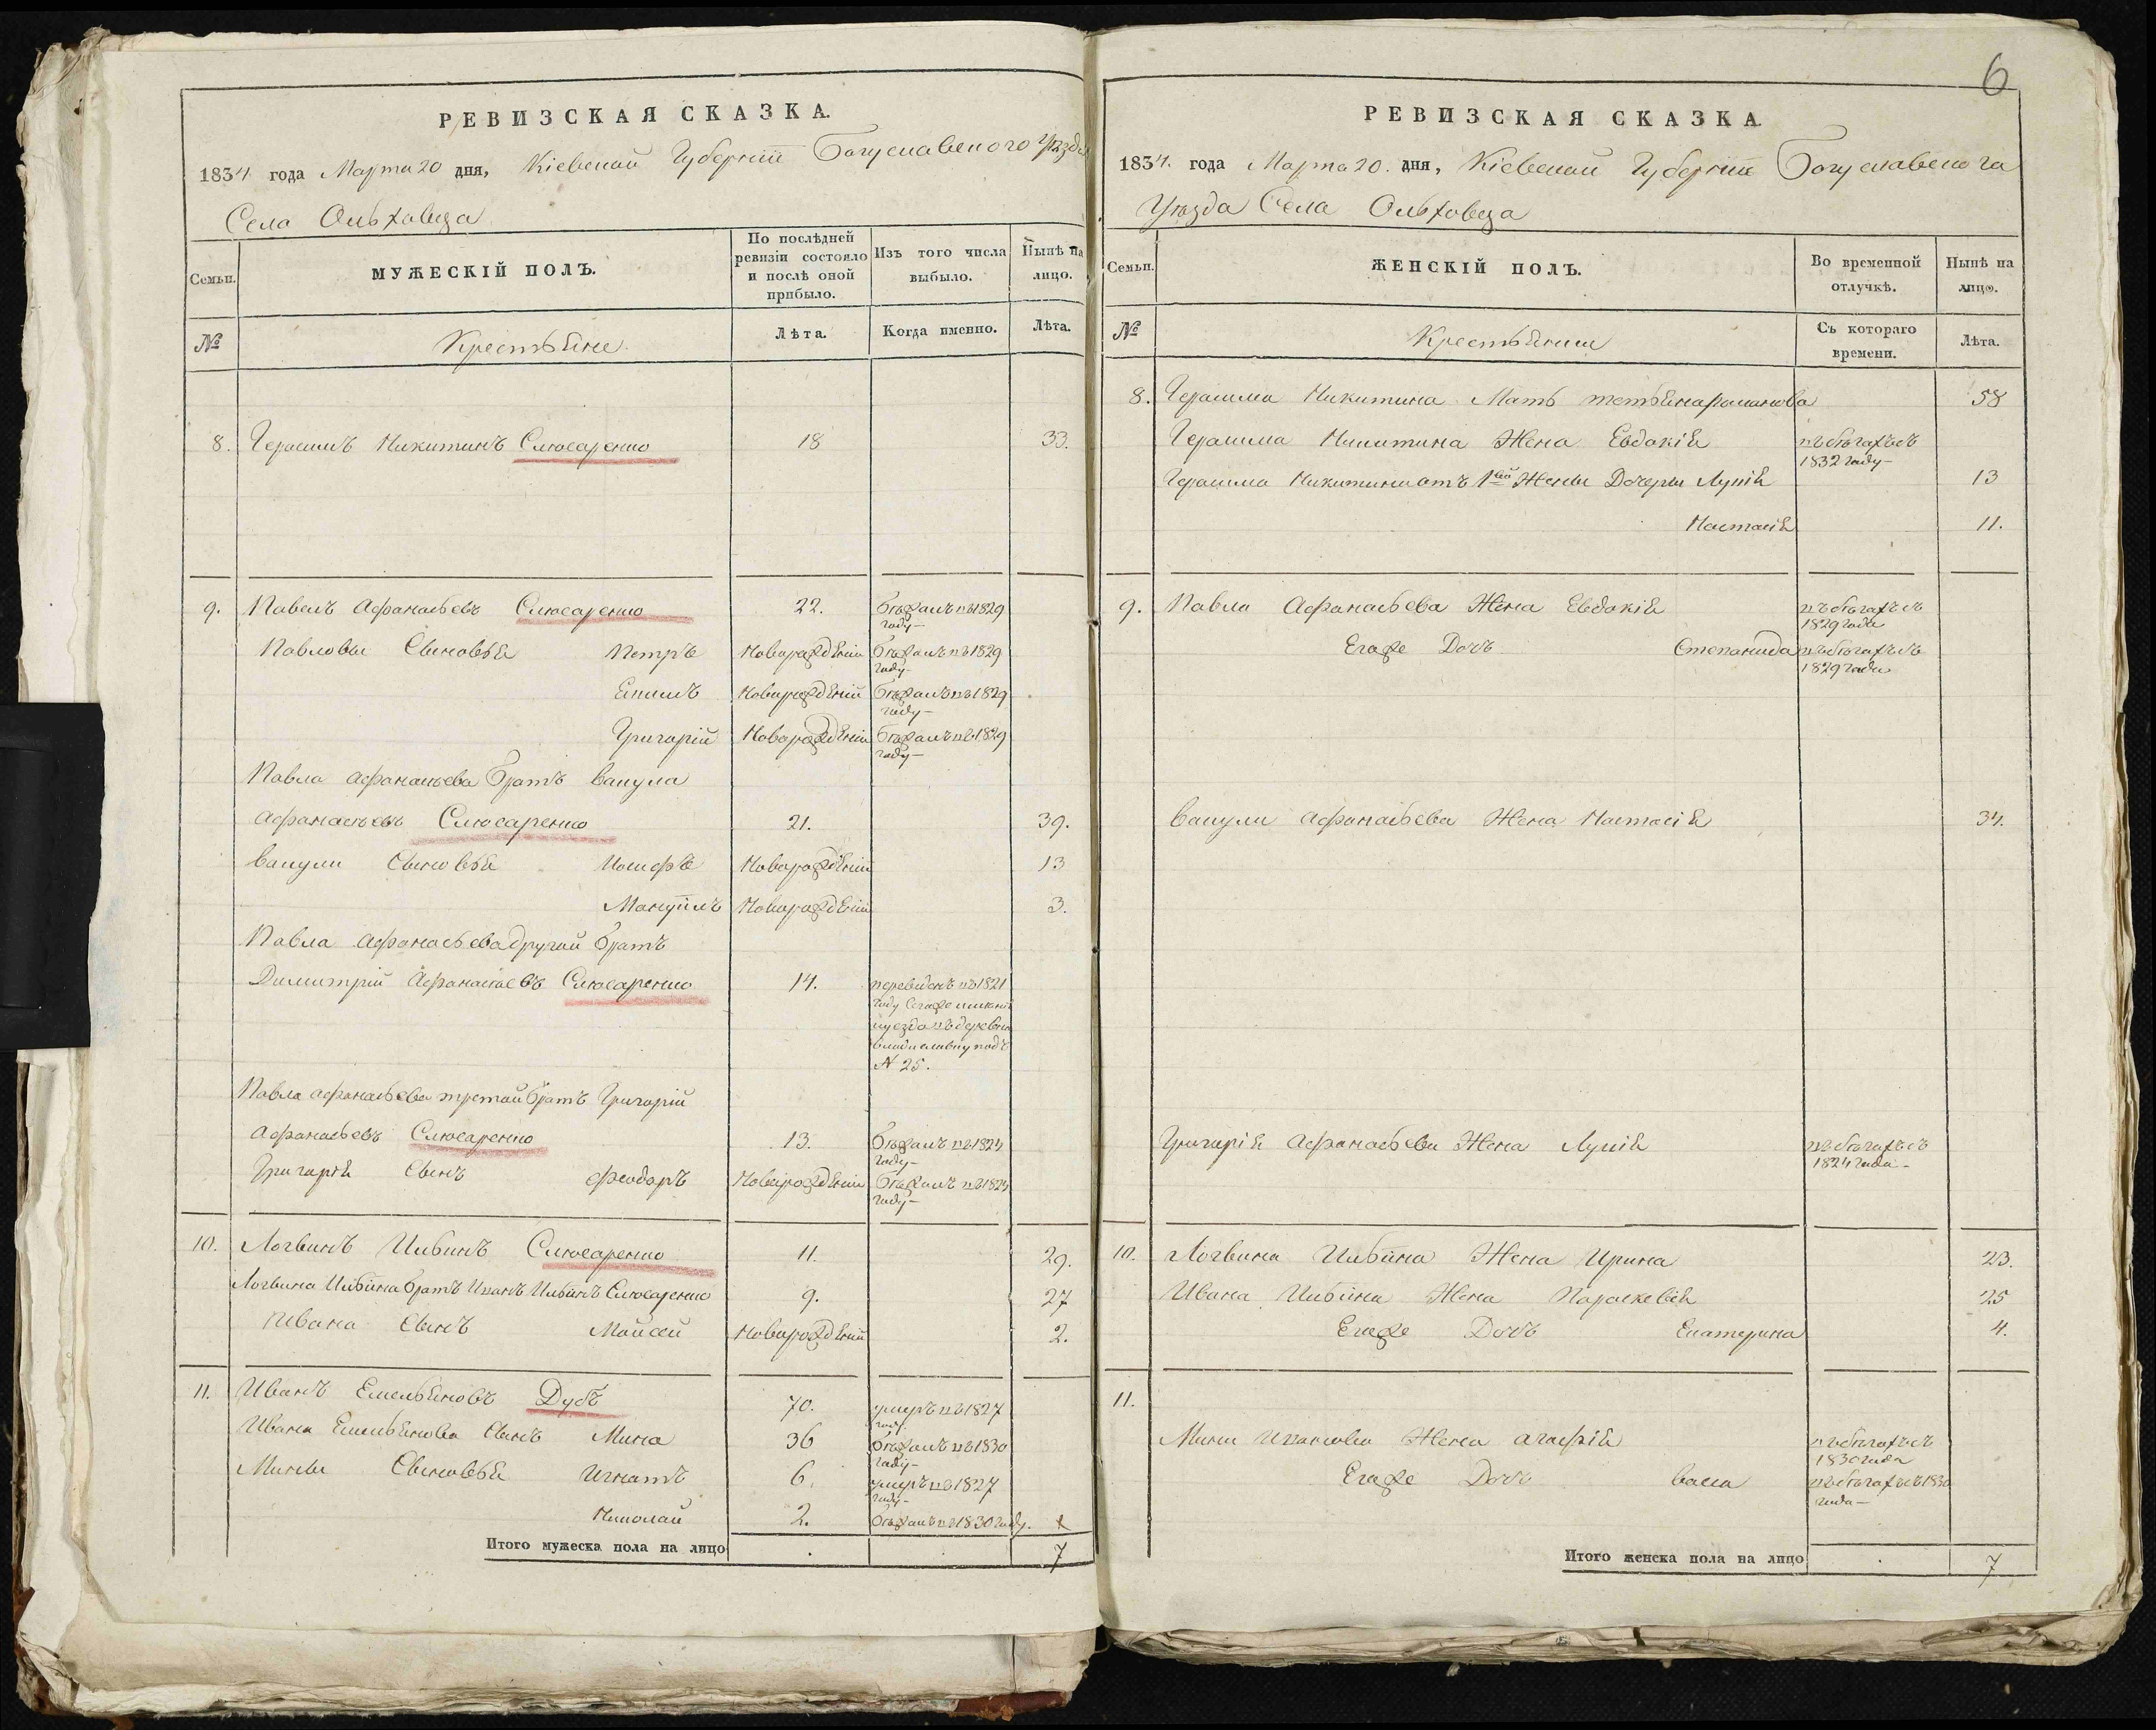 РЕВИЗСКАЯ СКАЗКА.
1834 года Марта 20 дня, Кіевской Губерніи Богуславского Уезда
Села Ольховца
Семьи.
МУЖЕСКІЙ ПОЛЪ.
По послѣдней ревизіи состояло и послѣ оной прибыло.
Изъ того числа выбыло.
Нынѣ на лицо.
№
Крестьяне
Лѣта.
Когда именно.
Лѣта.
8. Герасимъ Никитинъ Слюсаренко 18 33.
9. Павелъ Афанасьевъ Слюсаренко 22. бѣжалъ въ 1829
году
Павловы Сыновья Петръ Новорожденій бѣжалъ въ 1829
году
Екимъ Новорожденій бѣжалъ въ 1829
году
Григорій Новорожденій бѣжалъ въ 1829
году
Павла Афанасьева братъ Вакула
Афанасьевъ Слюсаренко 21. 39.
Вакули Сыновья Иосифъ Новорожденій 13
Мануйлъ Новорожденій 3.
Павла Афанасьева другой братъ
Димитрій Афанасьевъ Слюсаренко 14. переведенъ въ 1821
году сегоже
уезда въ деревню
подъ
N 25.
Павла Афанасьева третой братъ Григорій
Афанасьевъ Слюсаренко 13. бѣжалъ въ 1824
году
Григорія Сынъ Феодоръ Новорожденій бѣжалъ въ 1824
году
10. Логвинъ Ильинъ Слюсаренко 11. 29.
Логвина Ильина братъ Иванъ Ильинъ Слюсаренко 9. 27
Ивана Сынъ Мойсей Новорожденій 2.
11. Иванъ Емельяновъ Дубъ 70. умеръ въ 1827
году
Ивана Емельянова Сынъ Мина 36 бѣжалъ въ 1830
году
Мины Сыновья Игнатъ 6. умеръ въ 1827
году
Николай 2. бѣжалъ въ 1830 году.
Итого мужеска пола на лицо . . 7
6
РЕВИЗСКАЯ СКАЗКА
1834. года Марта 20. дня, Кіевской Губерніи Богуславского
Уезда Села Ольховца
Семьи.
ЖЕНСКІЙ ПОЛЪ.
Во временной отлучкѣ.
Нынѣ на лицо.
№
Крестьянки
Съ котораго времени.
Лѣта.
8. Герасима Никитина Мать Тетьяна Романова 58
Герасима Никитина Жена Евдокія въ бѣгахъ съ
1832 году
Герасима Никитина отъ 1ой Жены Дочеры Лукія 13
Настасія 11.
9. Павла Афанасьева Жена Евдокія въ бѣгахъ съ
1829 года
Егоже Дочь Степанида въ бѣгахъ съ
1829 года
Вакули Афанасьева Жена Настасія 34.
Григорія Афанасьева Жена Лукія въ бѣгахъ съ
1824 года
10. Логвина Ильина Жена Ирина 23.
Ивана Ильина Жена Параскевія 25
Егоже Дочь Екатерина 4.
11.
Мины Иванова Жена Агафія въ бѣгахъ съ
1830 года
Егоже Дочь Васса въ бѣгахъ съ 1830
года
Итого женска пола на лицо . 7